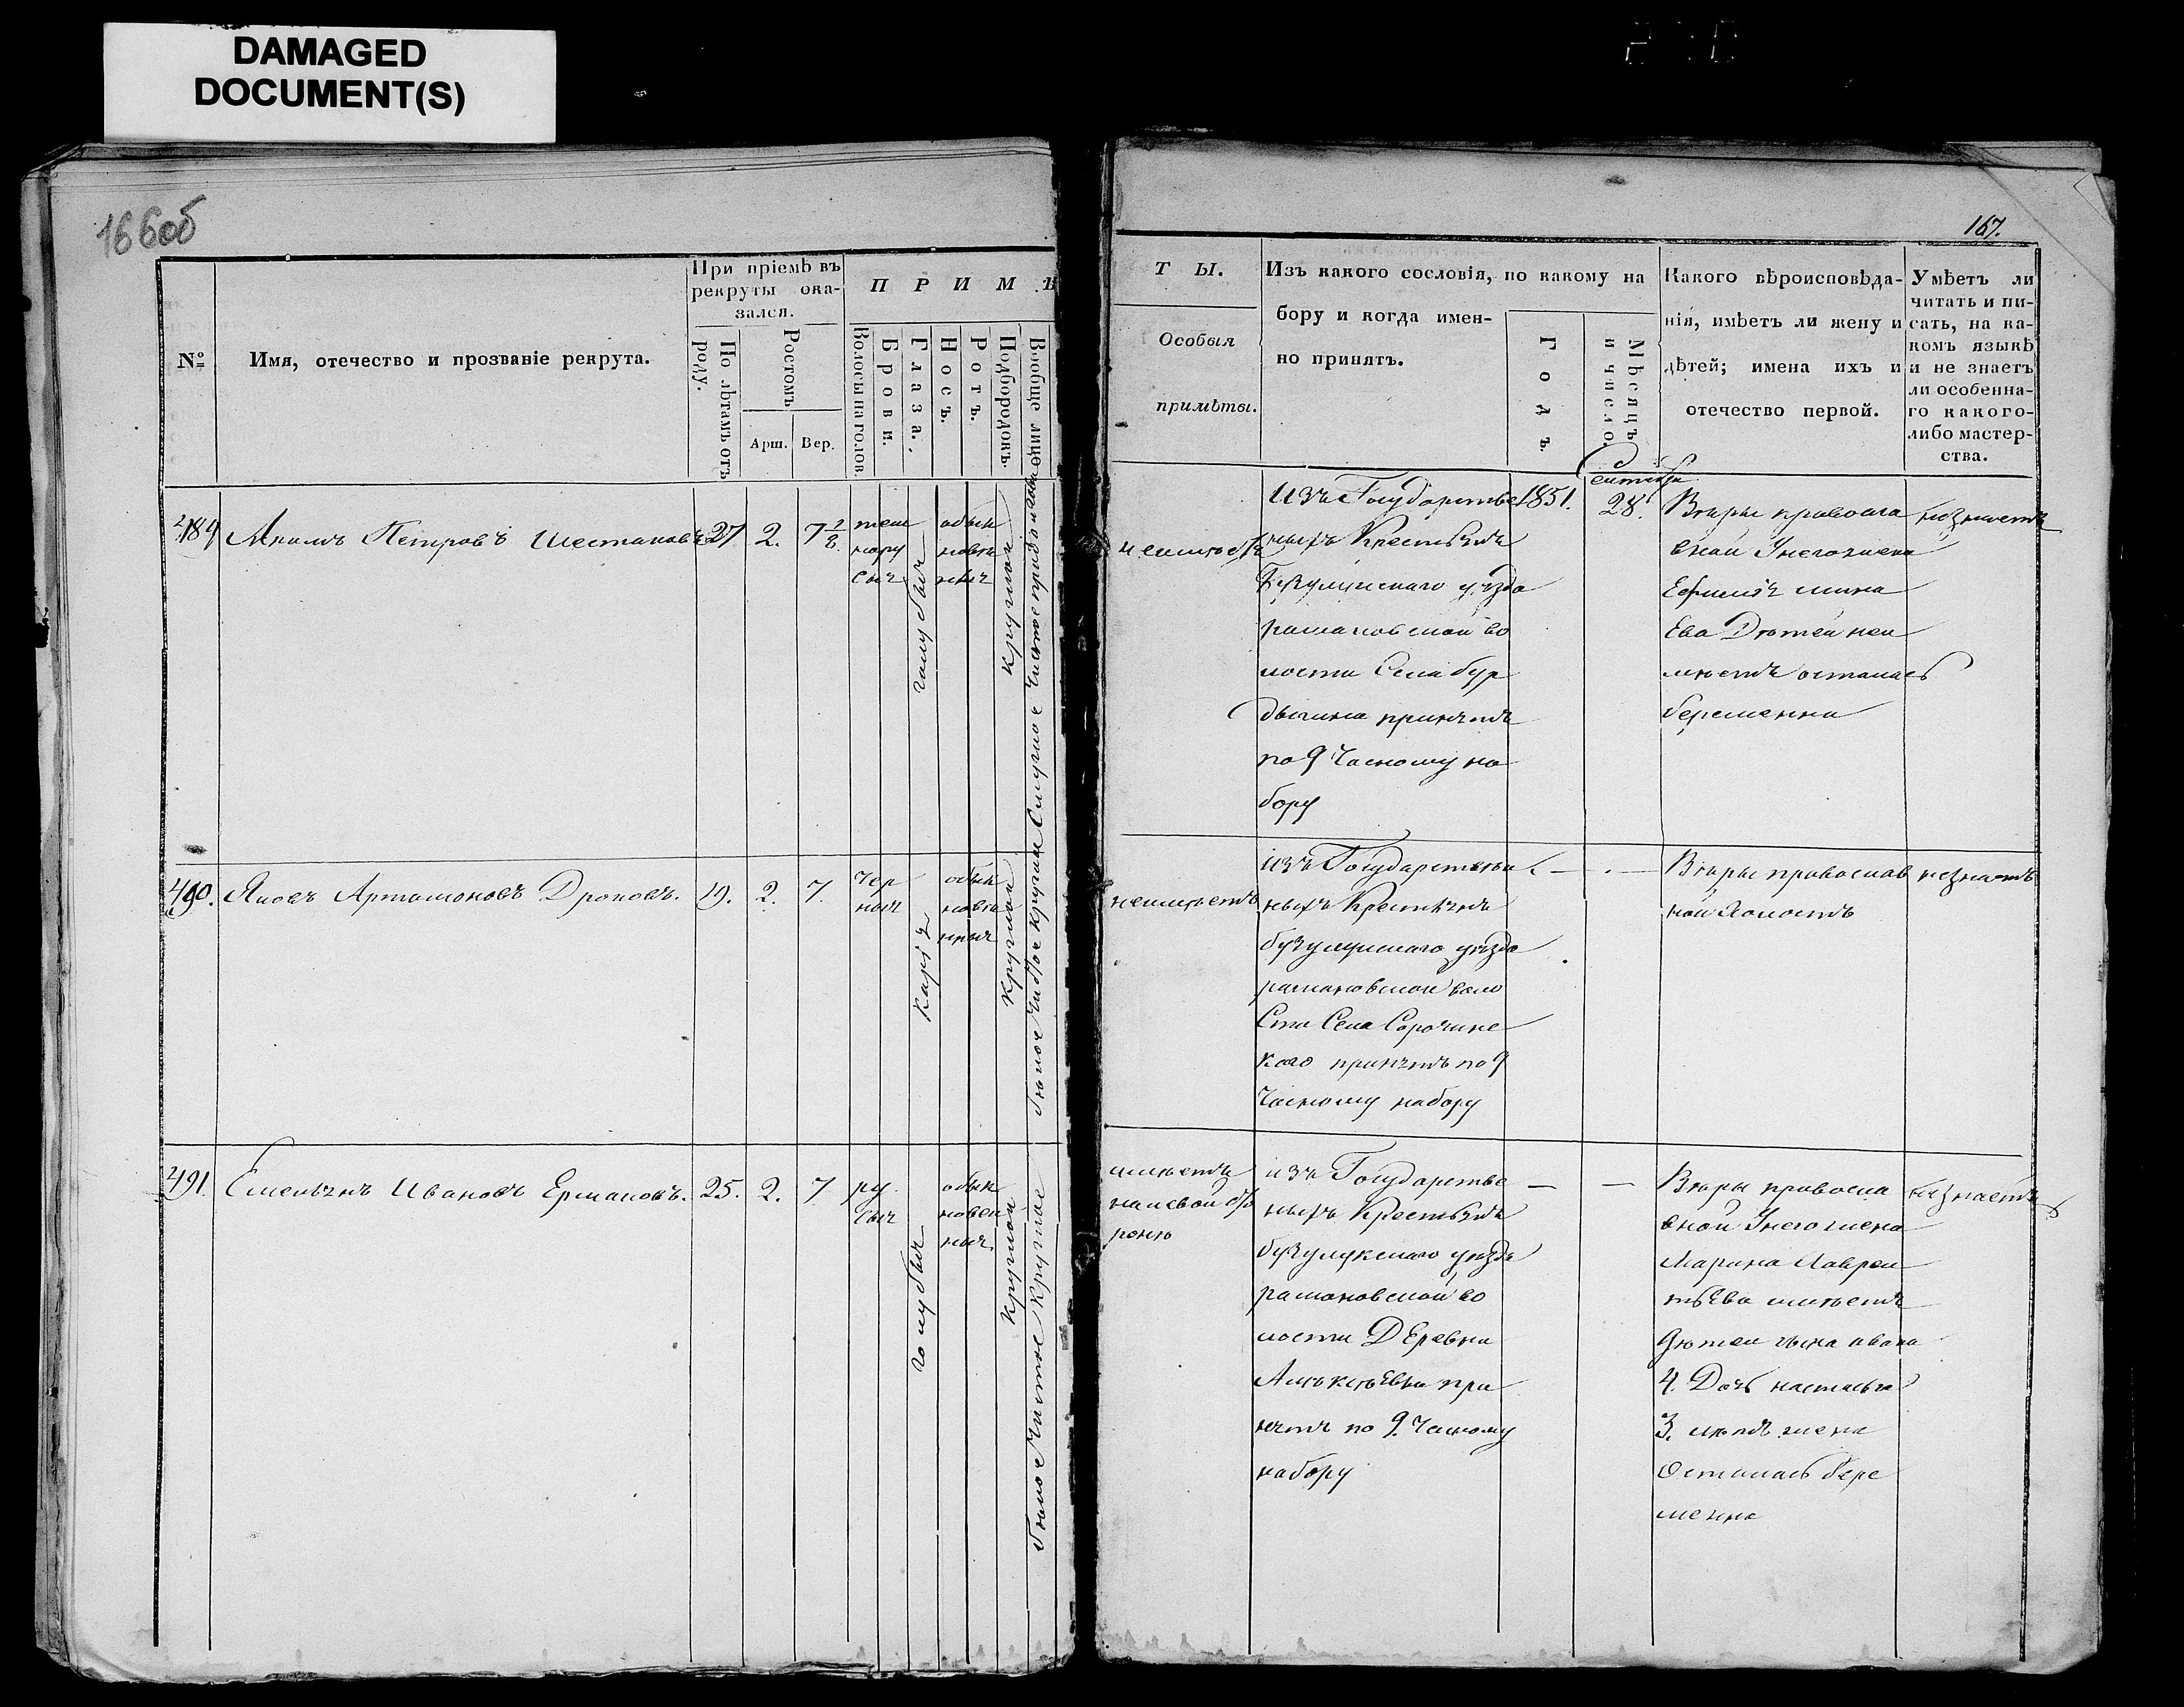 DAMAGED
DOCUMENT(S)
166об
№
Имя, отечество и прозваніе рекрута.
При пріемѣ въ
рекруты ока-
зался.
По лѣтамъ отъ
роду.
Ростомъ
Арш.
Вер.
П Р И М Ѣ
Волосы на голов
Брови.
Глаза.
Носъ.
Ротъ.
Подбородокъ.
Вообще лицо
489
Акимъ Петровъ Шестаковъ
27
2.
7 1/2.
темн
нору
сыя
голубыя
обык
новен
ныя
круглой
Чистое
Смуглое
490.
Яковъ Артамоновъ Дроновъ.
19.
2.
7.
чер
ныя
карія
обык
новен
ныя
круглой
белое Чистое круглое
491.
Емельянъ Ивановъ Ермаковъ.
25.
2.
7
ру
сыя
голубыя
обык
новен
ныя
круглой
белое Чистое Круглое
167.
Т Ы.
Особыя
примѣты.
Изъ какого сословія, по какому на
бору и когда имен-
но принятъ.
Годъ.
Мѣсяцъ
и число.
Какого вѣроисповѣда-
нія, имѣетъ ли жену и
дѣтей; имена ихъ и
отечество первой.
Умѣетъ ли
читать и пи-
сать, на ка-
комъ языкѣ
и не знаетъ
ли особенна-
го какого-
либо мастер-
ства.
неимѣетъ
изъ Государстве
ныхъ Крестьянъ
Бузулукскаго уѣзда
рамановской во
лости Села бур
дыгина принятъ
по 9 Часному на
бору
1851.
Сентября
28.
Вѣры правосла
вной Унего жена
Ефимія
Ева Дѣтей неи
мѣетъ осталась
беременна
незнаетъ
неимѣетъ
изъ Государствен
ныхъ Крестьянъ
бузулукскаго уѣзда
рамановской воло
Сти Села Сорочинс
Каго принятъ по 9
Часному набору
— . —
Вѣры православ
ной Холостъ
незнаетъ
имѣетъ
на левой сто
роню
изъ Государстве
ныхъ Крестьянъ
бузулукскаго уѣзда
рамановской во
лости Деревни
АлѣксѣЕвки при
нятъ по 9. Часному
набору
— —
Вѣры правосла
вной Унего жена
Марина Лаврен
тьЕва имѣетъ
дѣтей сына ивана
4. Дочь настасья
3. лѣтъ жена
Осталась бере
менна
незнаетъ